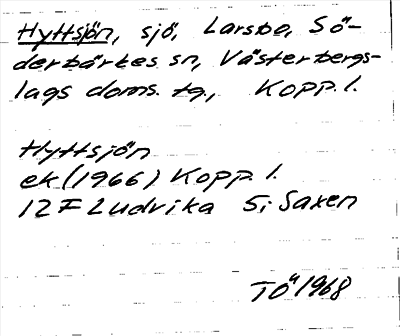 Hyttsjön, sjö, Larsbo, Sö-
derbärkes sn, Västerbergs-
lags doms. tg., Kopp. l.
Hyttsjön
ek (1966) Kopp. l.
12 F Ludvika 5; Saxen
TÖ 1968